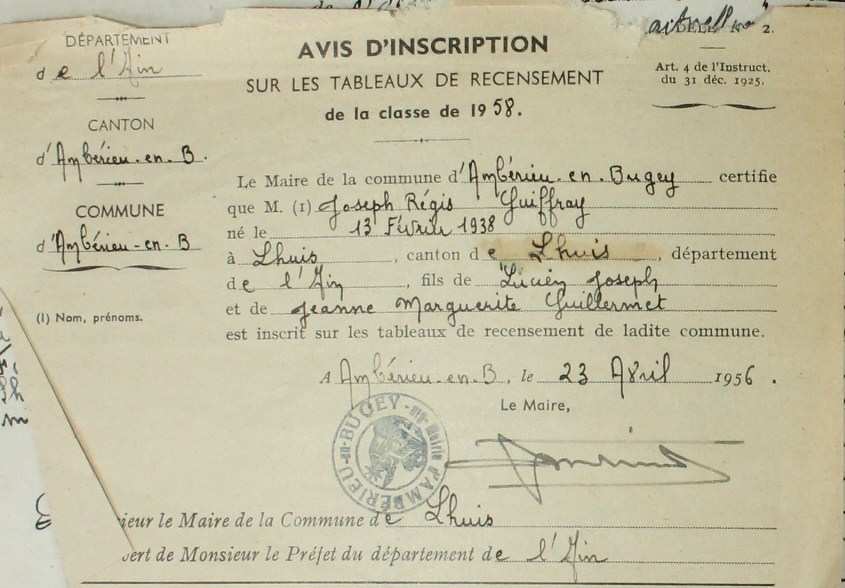 DÉPARTEMENT
de l'Ain
CANTON
d'Ambérieu.en.B.
COMMUNE
d'Ambérieu-en-B
(1) Nom, prénoms.
AVIS D'INSCRIPTION
SUR LES TABLEAUX DE RECENSEMENT
de la classe de 1958.
2.
Art. 4 de l'Instruct.
du 31 déc. 1925.
Le Maire de la commune d'Ambérieu-en-Bugey certifie
que M. (1) Joseph Régis Guiffray
né le 13 Février 1938
à Lhuis, canton de Lhuis, département
de l'Ain, fils de Lucien Joseph
et de Jeanne Marguerite Guillermet
est inscrit sur les tableaux de recensement de ladite commune.
A Ambérieu-en-B, le 23 Avril 1956.
Le Maire,
Mairie d'AMBÉRIEU-en-BUGEY
ieur le Maire de la Commune de Lhuis
vert de Monsieur le Préfet du département de l'Ain